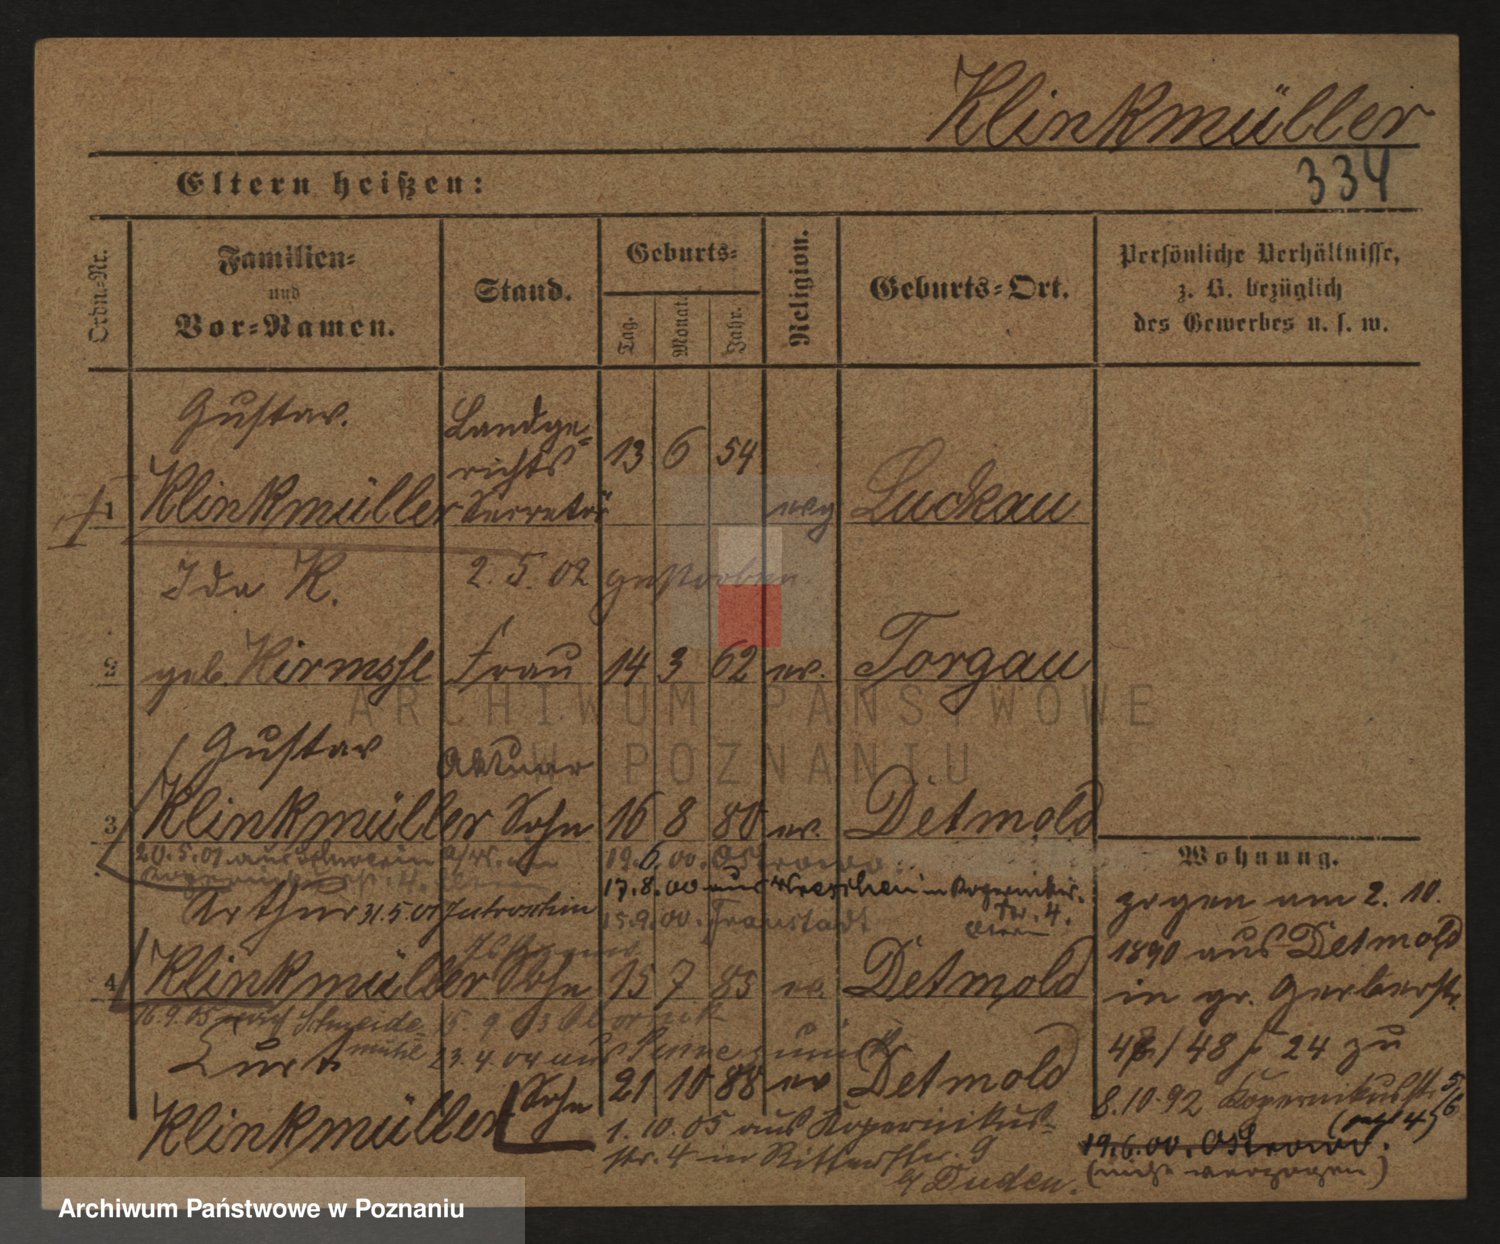 Klinkmüller
334
Eltern heißen:
Ordn.-Nr.
Familien-
und
Vor-Namen.
Stand.
Geburts-
Tag.
Monat.
Jahr.
Religion.
Geburts-Ort.
Persönliche Verhältnisse,
z. B. bezüglich
des Gewerbes u. s. w.
Gustav.
Landge-
richts
1 Klinkmüller Secretär 13 6 54 evg Luckau
Ida K. 2. 5. 02 gestorben.
2 geb. Frau 14 3 62 ev. Torgau
Gustav Aktuar
3 Klinkmüller Sohn 16 8 80 ev. Detmold
20.5.01. aus
19.6.00. Ostrowo
17.8.00 aus Wreschen in Kopernikus-
str. 4.
Eltern
Arthur 31.5.01
15.9.00. Fraustadt
4 Klinkmüller Sohn 15 7 85 ev. Detmold
16.9.05 nach Schneide-
mühl
15. 9. 03
23.4.04 aus
Curt
Klinkmüller Sohn 21 10 88 ev Detmold
1. 10. 05 aus Kopernikus-
str. 4 in Ritterstr. 9
b/ Duden.
Wohnung.
zogen am 2. 10.
1890 aus Detmold
in gr. Gerberstr.
48 f 24 zu
8.10.92 Kopernikusstr 5/6
(jetzt 4)
19.6.00. Ostrowo.
(nicht verzogen)
ARCHIWUM PAŃSTWOWE
W POZNANIU
Archiwum Państwowe w Poznaniu